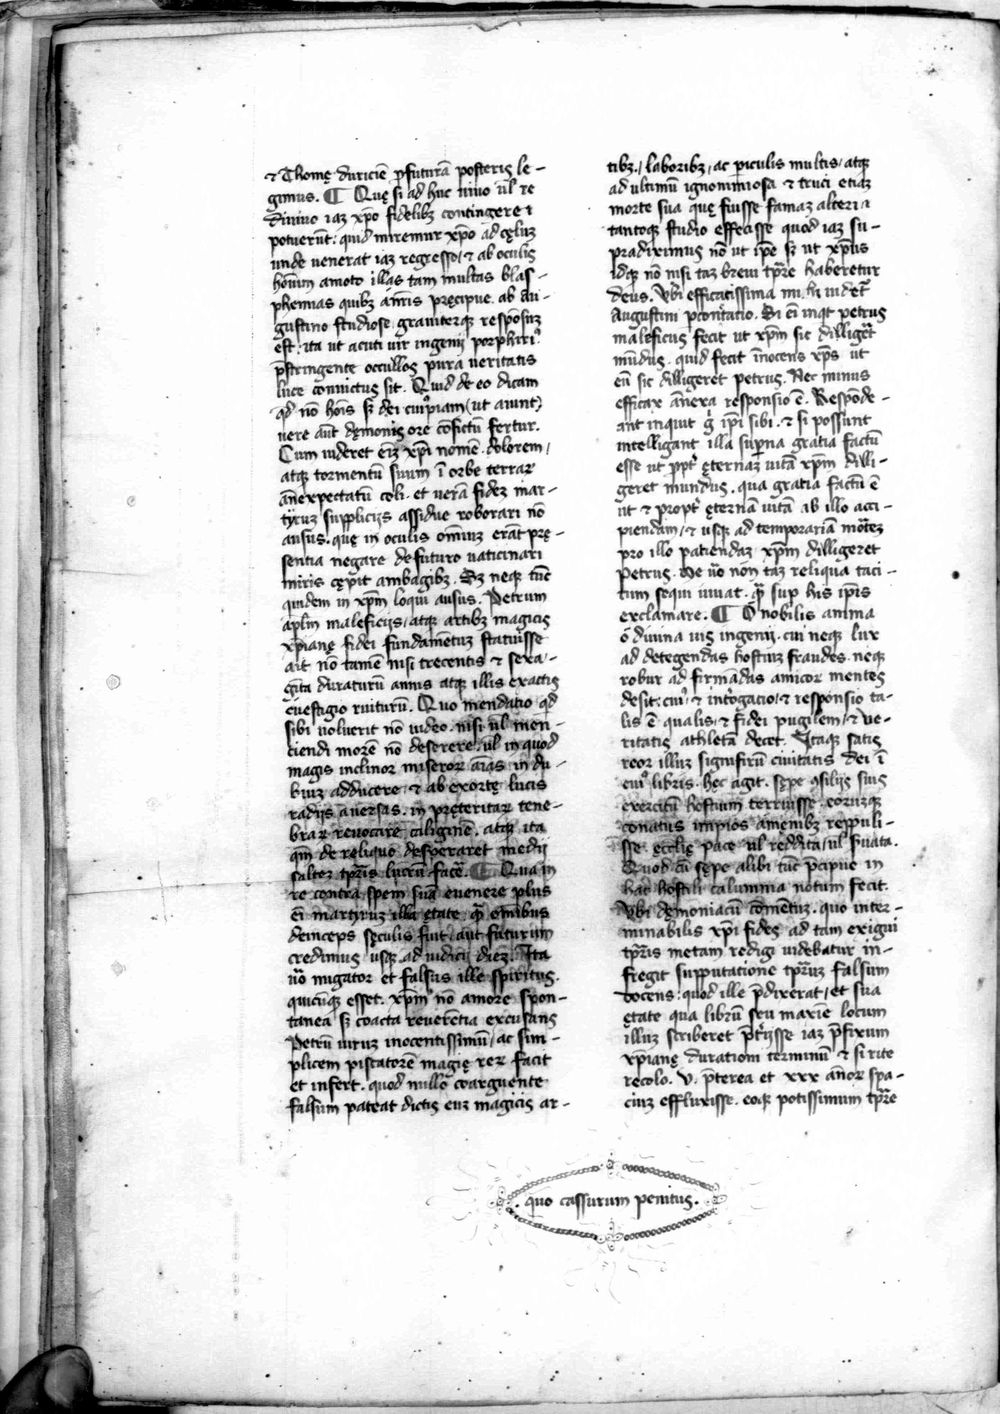 ⁊ Thomę duriciē ꝓfuturā posteris le-
gimus. ¶ Quę si ad huc uiuo ul re
diuiuo iaꝫ xp̄o fidelibꝫ contingere ⁊
potuerūt: quid miremur xp̄o ad cęluꝫ
unde uenerat iaꝫ regresso/ ⁊ ab oculis
hoīum amoto illas tam multas blas-
phemias quibꝫ an̄ris pręcipue. ab au-
gustino studiose grauiterqꝫ respōsuꝫ
est: ita ut acuti uir ingenij porphiriꝰ
p̄stringente occullos pura ueritatis
luce conuictus sit. Quid de eo dicam
qd̄ nō hoīs sꝫ dei cuiꝰpiam (ut aiunt)
uere aūt dęmonis ore cōfictū fertur.
Cum uideret eiꝫ xp̄i nomē. dolorem/
atqꝫ tormentū suum ī orbe terraꝝ
anexpectatū coli. et uerā fideꝫ mar-
tyruꝫ supplicijs assidue roborari nō
ausus. quę in oculis omiuꝫ erāt prę-
sentia negare de futuro uaticinari
miris cępit ambagibꝫ. Sꝫ neqꝫ tūc
quidem in xp̄m loqui ausus. Petrum
apl̄m maleficijs/ atqꝫ artibꝫ magicis
xp̄ianę fidei fundamētuꝫ statuisse
ait nō tamē nisi trecentis ⁊ sexa-
gīta duraturū annis atqꝫ illis exactis
euestigio ruiturū. Quo mendatio qd̄
sibi uoluerit nō uideo. nisi ul men-
ciendi morē nō deserere. ul in quod
magis inclinor miseroꝝ aīas in du-
biuꝫ adducere/ ⁊ ab exortę lucis
radijs auersas. in pręteritaꝝ tene-
braꝝ reuocare caliginē. atqꝫ ita
qm̄ de reliquo desperaret medij
salteꝫ tp̄ris lucrū facē. ¶ Qua in
re contra spem suā euenere plus
ei martyruꝫ illa ętate. ꝙ̄ omībus
deinceps sęculis fuit/ aut futurum
credimus/ usqꝫ ad iudicij dieꝫ. Ita
uō nugator et falsus ille spiritus.
quicūqꝫ esset. xp̄m nō amore spon-
tanea sꝫ coacta reuerētia excusans
Petrū uiruꝫ inocentissimū/ ac sim-
plicem piscatorē magię reꝝ facit
et infert. quod nullo coarguente
falsum pateat dictis euꝫ magicis ar-
tibꝫ/ laboribꝫ/ ac periculis multis/ atqꝫ
ad ultimū ignominiosa ⁊ truci etiaꝫ
morte sua quę fuisse famaꝫ alteri/ ⁊
tantoqꝫ studio effecisse quod iaꝫ su-
pradiximus nō ut ip̄e sꝫ ut xp̄us
idqꝫ nō nisi taꝫ breui tp̄re haberetur
deus. Vbi efficatissima mihi uidet̄
Augustini ꝑcontatio. Si eī inqt petrus
maleficus fecit ut xp̄m sic dilligēt
mūdus. quid fecit īnocens xp̄s ut
eū sic dilligeret petrus. Nec minus
efficax ānexa responsio ē. Respōde-
ant inquit gͦ ip̄i sibi. ⁊ si possunt
intelligant illa sup̄na gratia factū
esse ut ꝓpt̄ ęternaꝫ uitā xp̄m dilli-
geret mundus. qua gratia factū ē
ut ⁊ propt̄ ęternā uitā ab illo acci-
piendam/ ⁊ usqꝫ ad temporariā morteꝫ
pro illo patiendaꝫ xp̄m dilligeret
Petrus. Me uō non taꝫ reliqua taci-
tum sequi iuuat. ꝙ̄ sup his ip̄is
exclamare. ¶ O nobilis anima
ō diuina uis ingenij. cui neqꝫ lux
ad detegendas hostiuꝫ fraudes. neqꝫ
robur ad firmādas amicoꝝ mentes
desit: cuiꝰ ⁊ int̄rogacio/ ⁊ responsio ta-
lis ē qualis/ ⁊ fidei pugilem/ ⁊ ue-
ritatis athletā decet. Itaqꝫ satis
reor illuꝫ signifirū ciuitatis dei ī
cuiꝰ libris. hęc agit. sępe ꝯsilijs suis
exercitū hostium terruisse. eorūqꝫ
conatus impios amęnibꝫ reppuli-
sse ęcclię pace ul reddita/ ul ſuata.
Quod cū sępe alibi tūc p̄cipue in
hac hostili calumnia notum fecit.
Vbi dęmoniacū cōmētuꝫ. quo inter-
minabilis xp̄i fides ad tam exigui
tp̄ris metam redigi uidebatur in-
fregit supputatione tp̄ruꝫ falsum
docens: quod ille p̄dixerat/ et sua
ętate qua librū seu maxiē locum
illuꝫ scriberet p̄t̄ijsse iaꝫ p̄fixum
xp̄ianę durationi terminū ⁊ si rite
recolo. V. p̄terea et xxx annoꝝ spa-
ciuꝫ effluxisse. eoqꝫ potissimum tp̄re
. quo cassurum penitus.